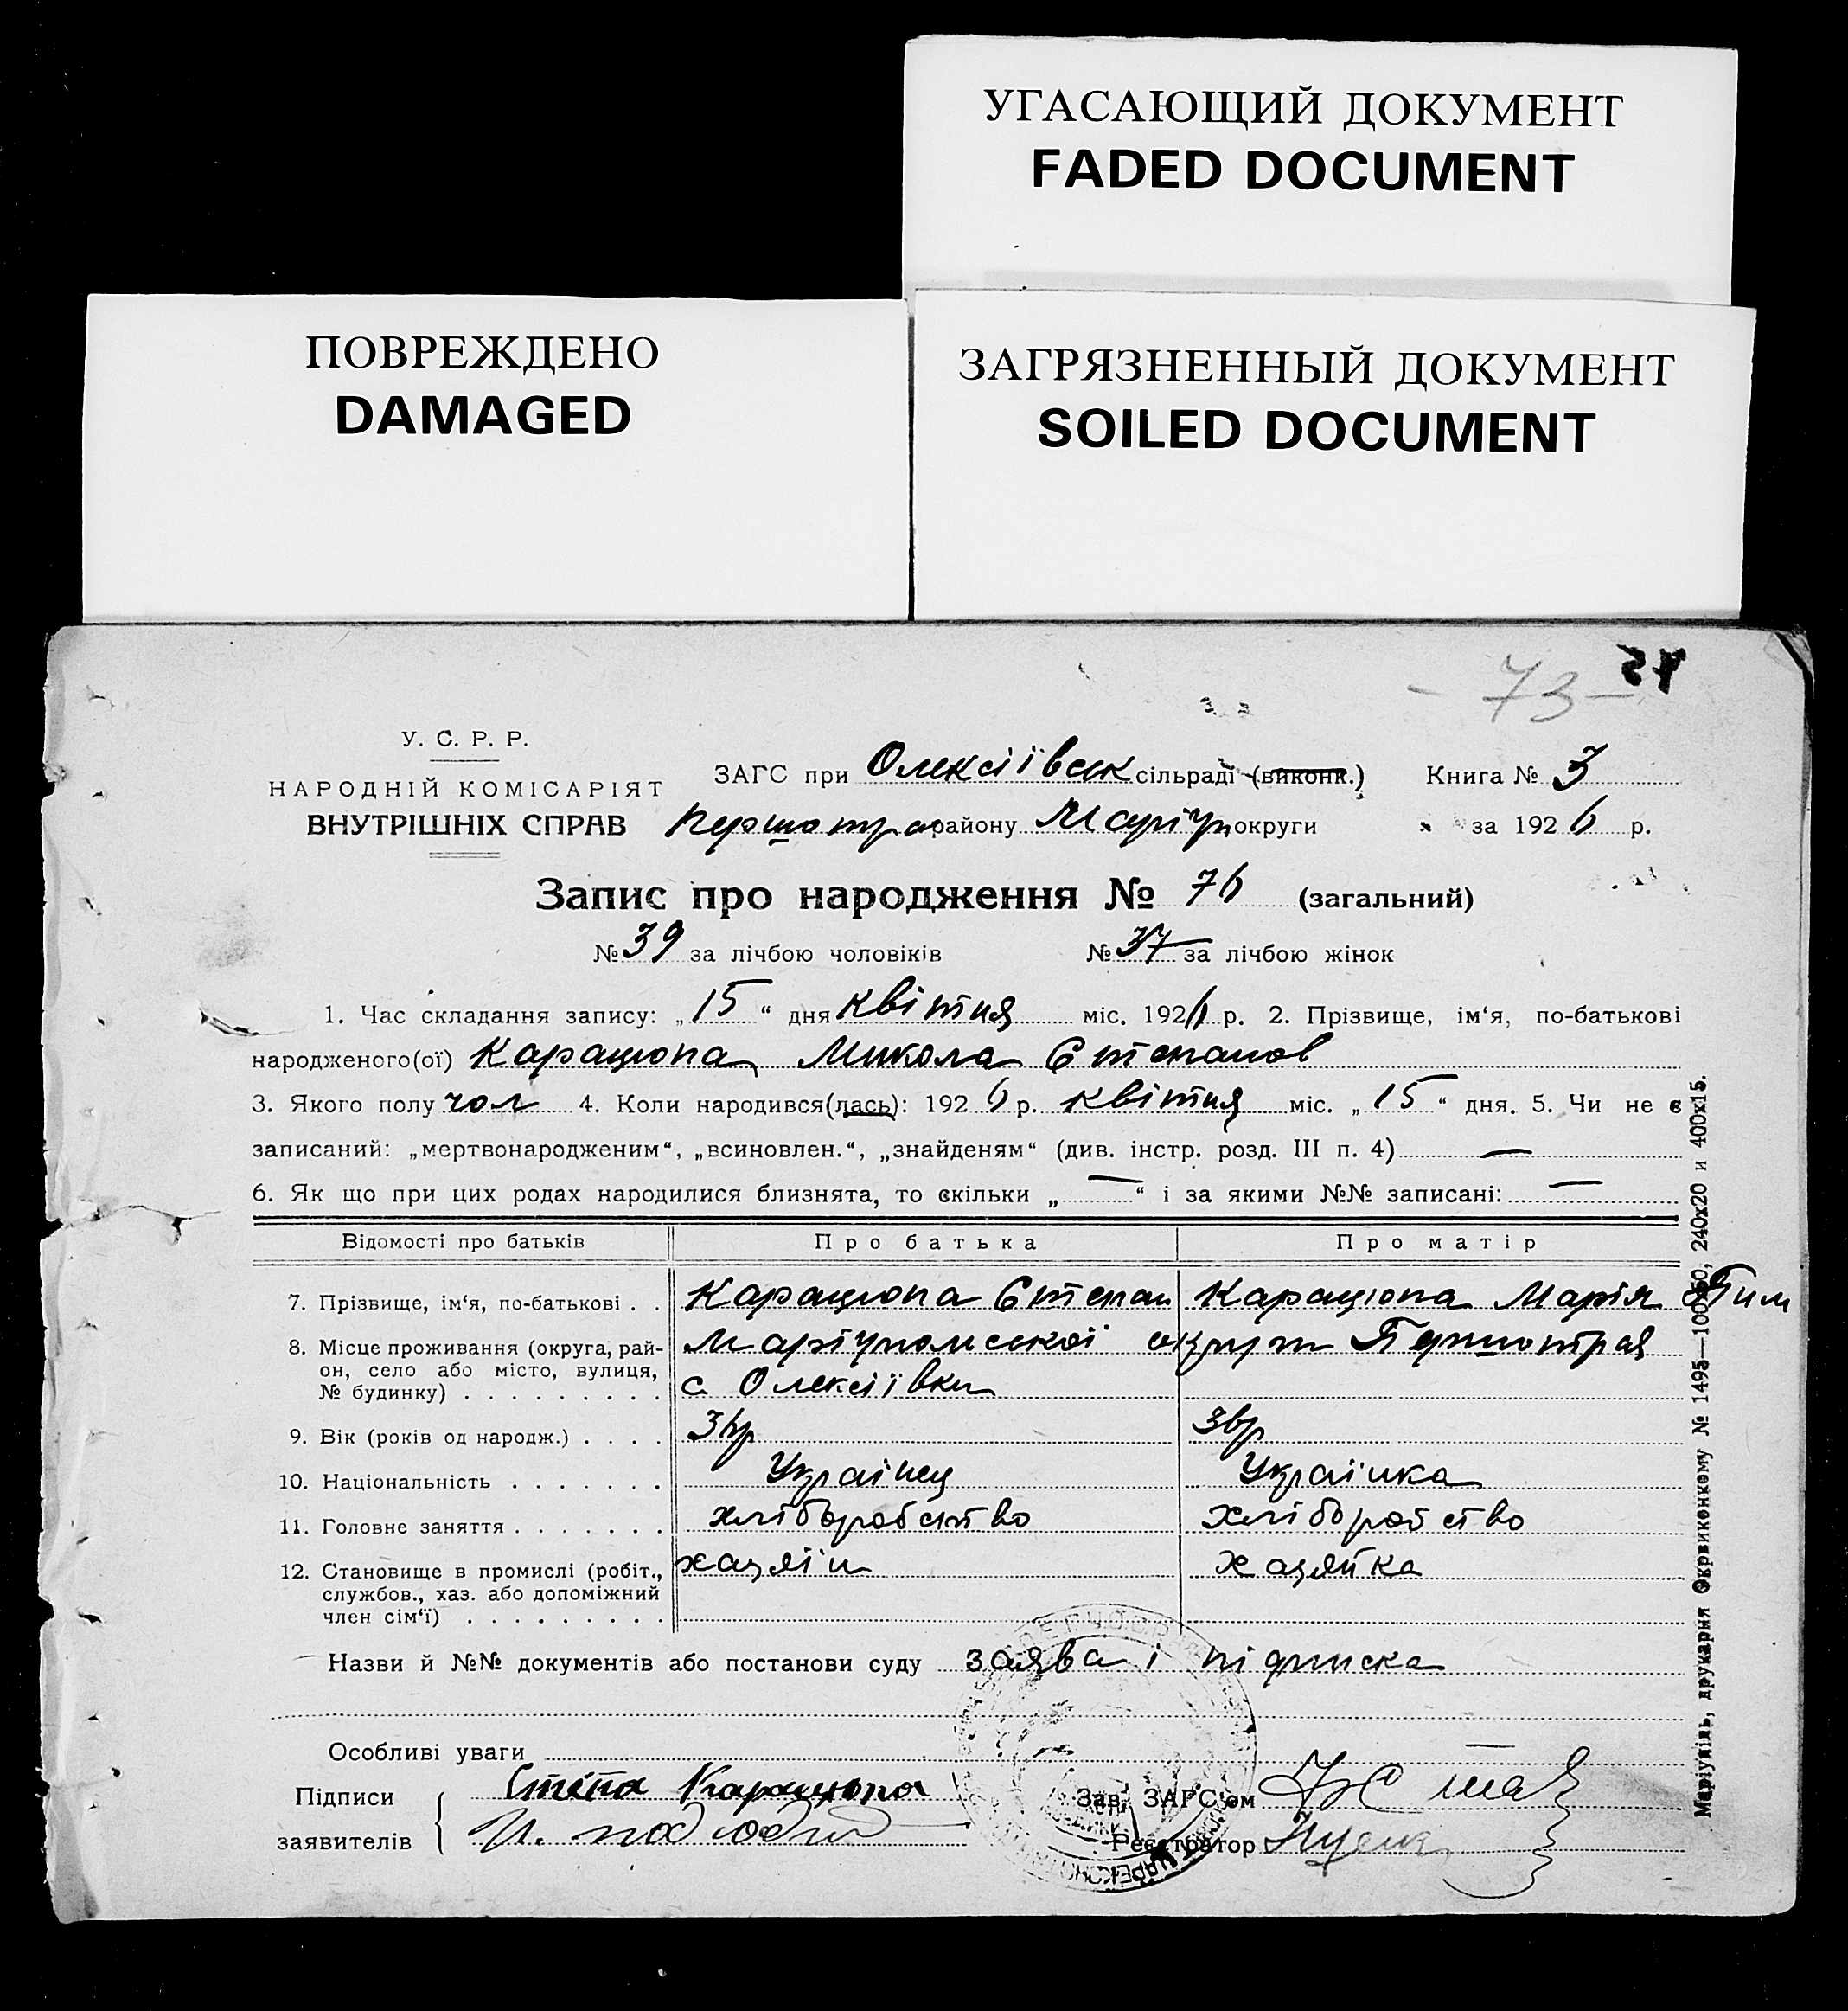 УГАСАЮЩИЙ ДОКУМЕНТ
FADED DOCUMENT
ПОВРЕЖДЕНО
DAMAGED
ЗАГРЯЗНЕННЫЙ ДОКУМЕНТ
SOILED DOCUMENT
- 73 -
У. С. Р. Р.
НАРОДНІЙ КОМІСАРІЯТ
ВНУТРІШНІХ СПРАВ
ЗАГС при Олексіївск сільраді (виконк.) Книга № 3
Першотра району Маріуп округи за 1926 р.
Запис про народження № 76 (загальний)
№ 39 за лічбою чоловіків № 37 за лічбою жінок
1. Час складання запису: „15“ дня квітня міс. 1926 р. 2. Прізвище, ім‘я, по-батькові
народженого(ої) Карацюпа Микола Єтепанов
3. Якого полу чол 4. Коли народився(лась): 1926 р. квітня міс. „15“ дня. 5. Чи не є
записаний: „мертвонародженим“, „всиновлен.“, „знайденям“ (див. інстр. розд. III п. 4) —
6. Як що при цих родах народилися близнята, то скільки „—“ і за якими №№ записані: —
Відомості про батьків Про батька Про матір
7. Прізвище, ім‘я, по-батькові . . Карацюпа Єтепан Карацюпа Марія
8. Місце проживання (округа, рай-
он, село або місто, вулиця,
№ будинку) . . . . . . . . .
Маріупольської округи Першотрав
с Олексіївки
9. Вік (років од народж.) . . . .
10. Національність . . . . . . . Українец Українка
11. Головне заняття . . . . . . . хліборобство хліборобство
12. Становище в промислі (робіт., хазяїн хазяйка
службов., хаз. або допоміжний
член сім‘ї) . . . . . . . . .
Назви й №№ документів або постанови суду заява і підписка
Особливі уваги —
Підписи Степа Карацюпа Зав. ЗАГС‘ом
заявителів Реєстратор
Маріупіль, друкарня Окрвиконкому № 1495—100×50, 240х20 и 400х15.